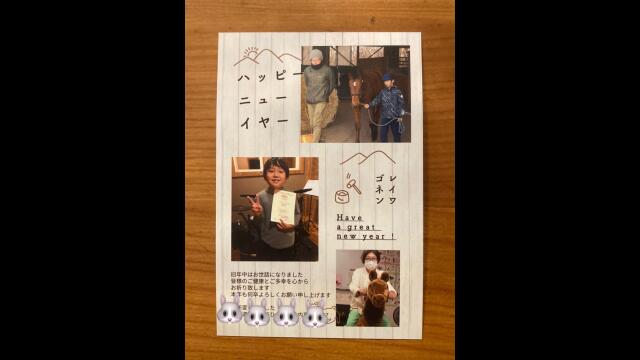 ハッピー
ニュー
イヤー
レイワ
ゴネン
Have
a great
new year!
旧年中はお世話になりました
皆様のご健康とご多幸を心から
お祈り致します
本年も何卒よろしくお願い申し上げます